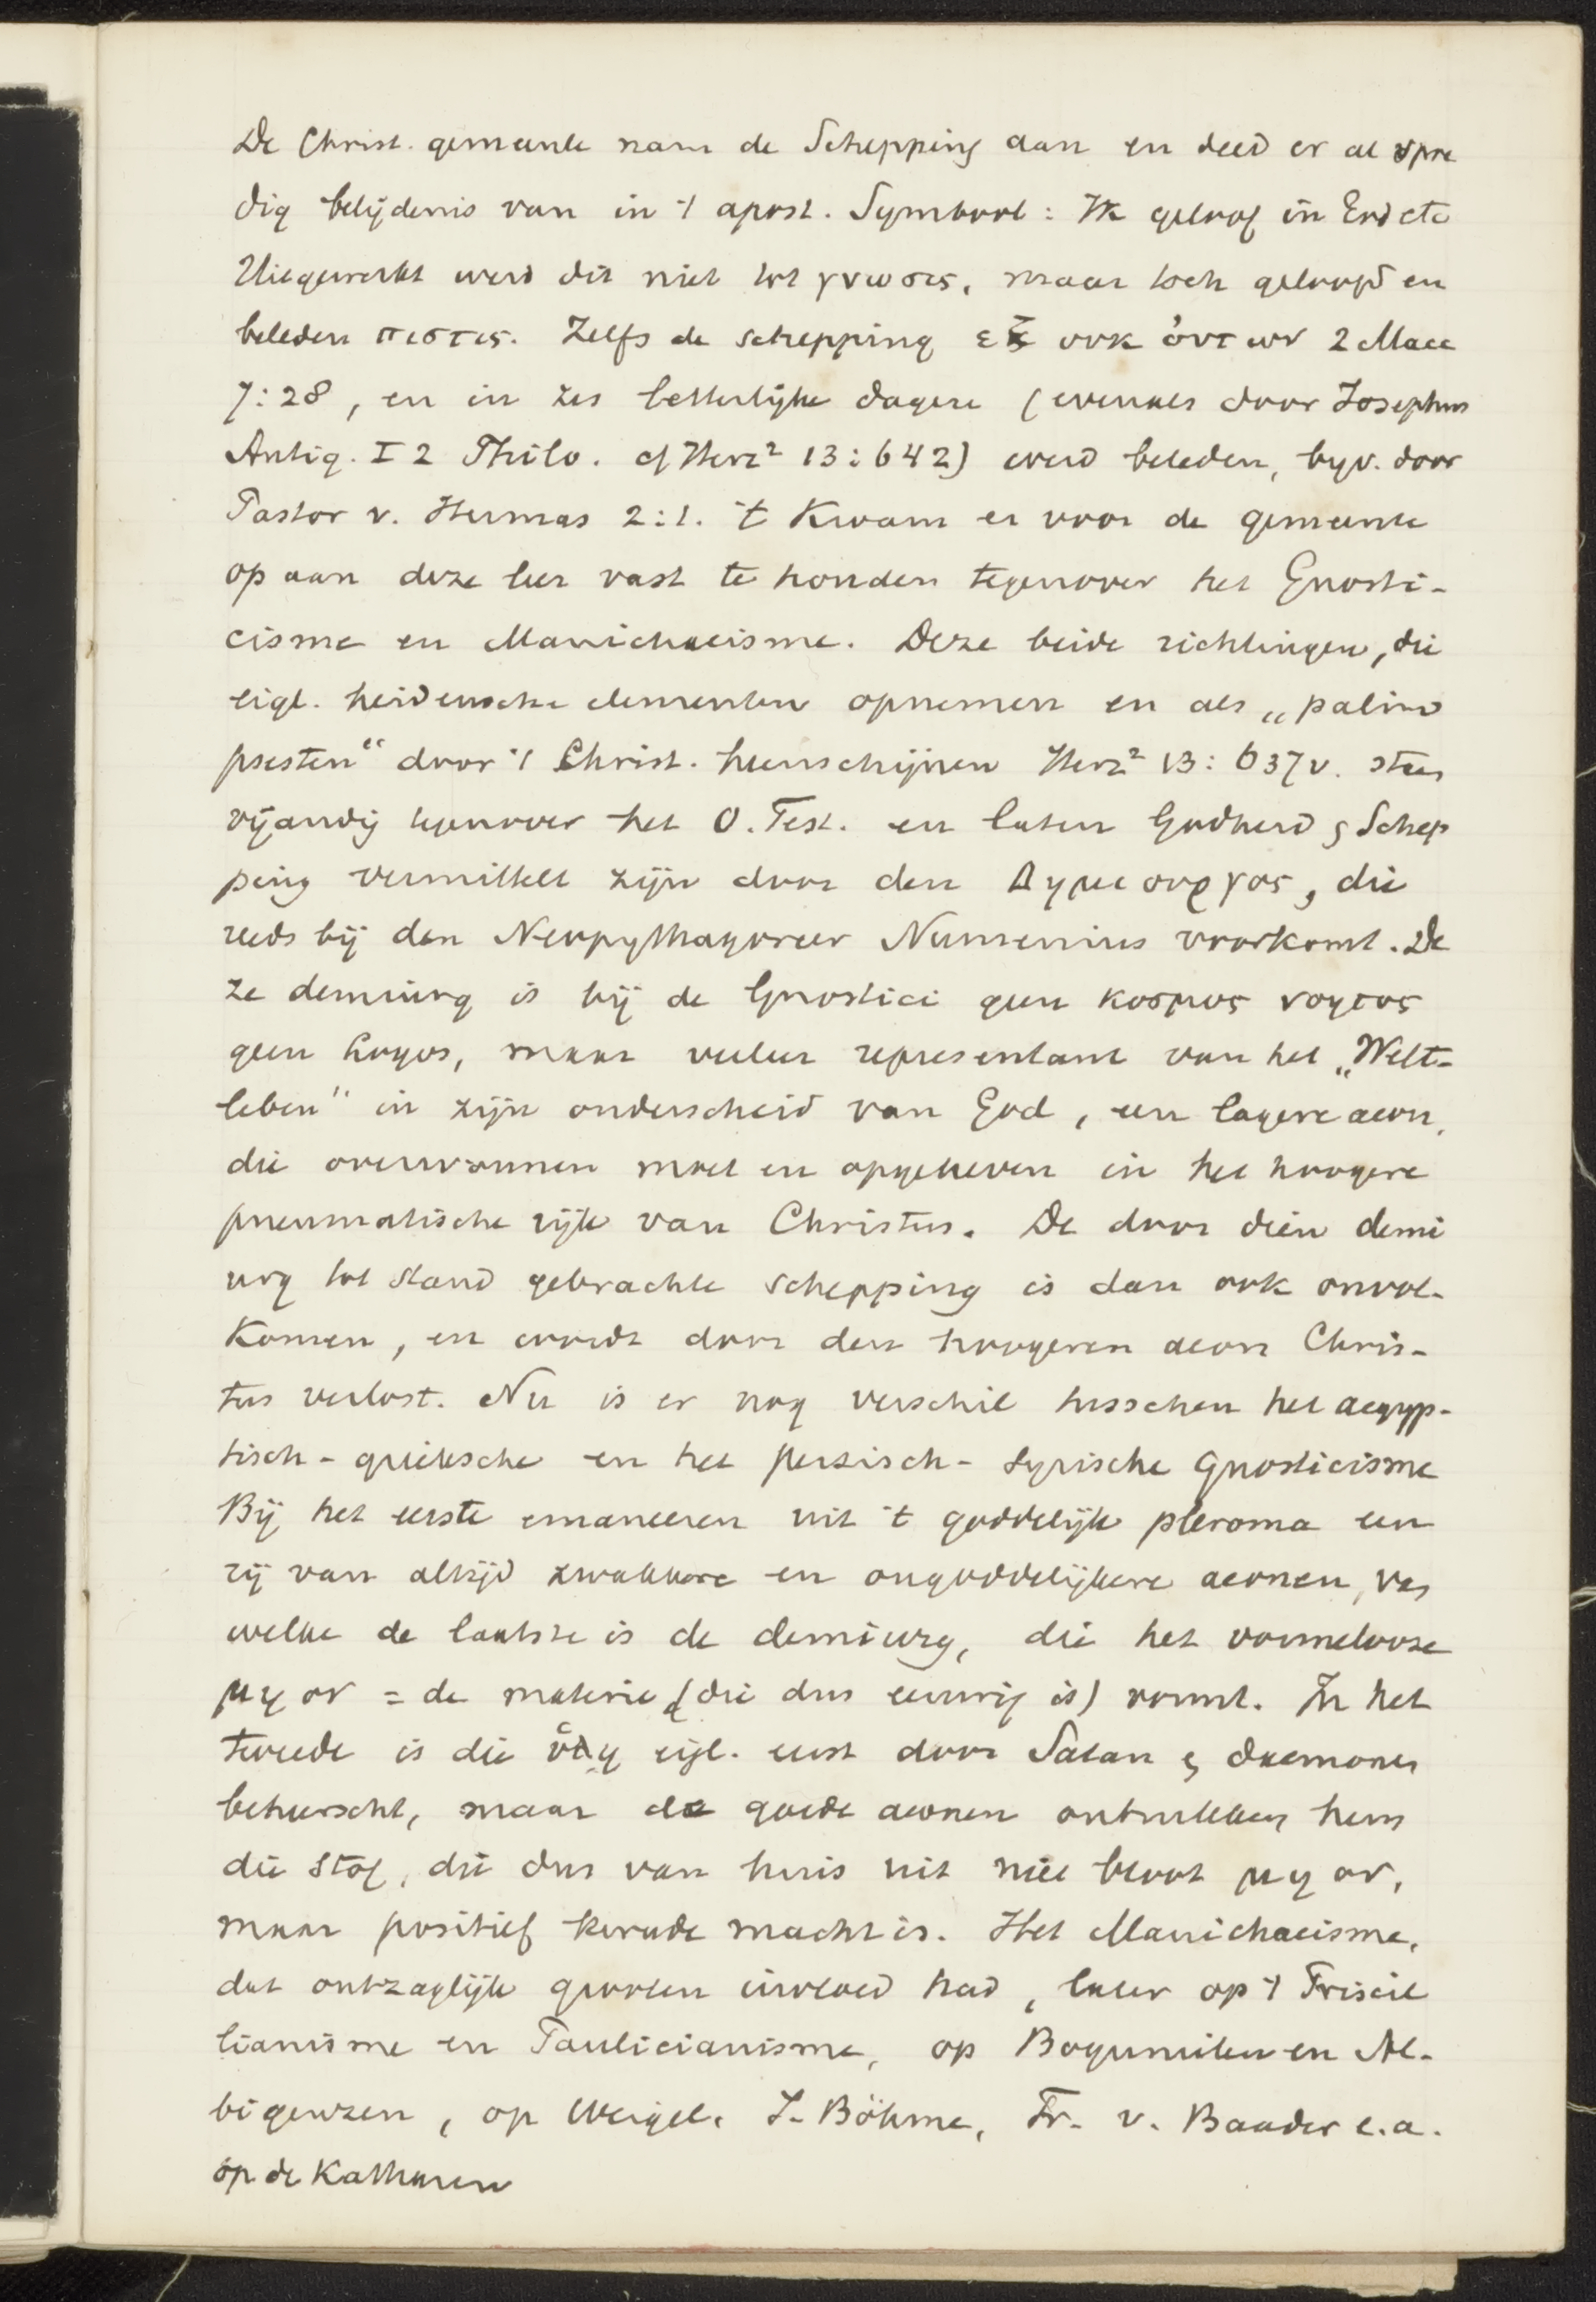 De Christ. gemeente nam de Schepping aan en deed er al spoe
dig belijdenis van in 't apost. Symbool: Ik geloof in God etc
Uitgewerkt werd dit niet tot γνωσις, maar toch geloofd en
beleden πιστις. Zelfs de schepping εξ ουκ ὀντων 2 Macc
7:28, en in zes letterlijke dagen (evenals door Josephus
Antiq. I 2 Philo. cf Herz² 13:642) werd beleden, byv. door
Pastor v. Hermas 2:1. 't Kwam er voor de gemeente
op aan deze leer vast te houden tegenover het Gnosti-
cisme en Manichaeisme. Deze beide richtingen, die
eigl. heidensche elementen opnemen en als „palim
psesten“ door 't Christ. heenschijnen Herz² 13:637v. staan
vijandig tegenover het O. Test. en laten Godheid & Schep
ping vermittelt zijn door den Δημιουργος, die
reeds bij den Neopythagoreer Numenius voorkomt. De
ze demiurg is bij de Gnostici geen κοσμος νοητος
geen Logos, maar veeleer representant van het „Welt-
leben" in zijn onderscheid van God, een lagere aeon,
die overwonnen moet en opgeheven in het hoogere
pneumatische rijk van Christus. De door dien demi
urg tot stand gebrachte schepping is dan ook onvol-
komen, en wordt door den hoogeren aeon Chris-
tus verlost. Nu is er nog verschil tusschen het aegyp-
tisch-grieksche en het perzisch-syrische Gnosticisme
Bij het eerste emaneeren uit 't goddelijk pleroma een
rij van altijd zwakkere en ongoddelijkere aeonen, van
welke de laatste is de demiurg, die het vormelooze
μη ον = de materie (die dus eeuwig is) vormt. In het
tweede is die ὑλη eigl. eerst door Satan & daemonen
beheerscht, maar de goede aeonen ontrukken hem
die stof, die dus van huis uit niet bloot μη ον,
maar positief kwade macht is. Het Manichaeisme,
dat ontzaglijk grooten invloed had, later op 't Priscil
lianisme en Paulicianisme, op Bogumilen en Al-
bigenzen, op Weigel, J. Böhme, Fr. v. Baader e.a.
op de Katharen